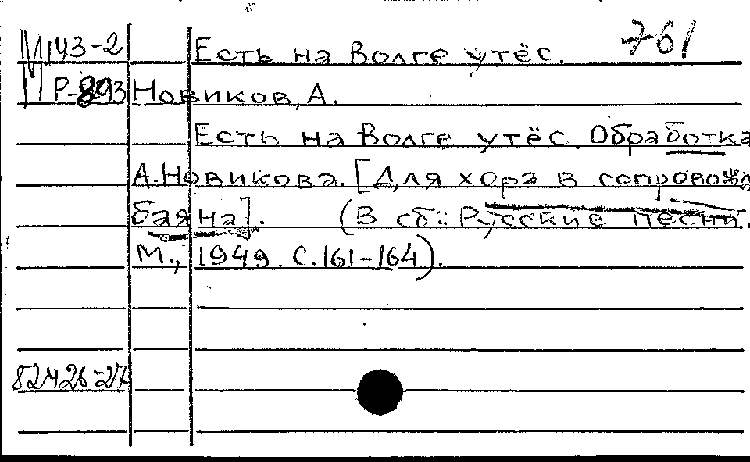 М143-2 Есть на Волге утёс. 761
М Р-893 Новиков, А.
Есть на Волге утёс. Обработка
А. Новикова. [Для хора в сопровожд
баяна]. (В сб.: Русские песни.
М., 1949 С. 161-164).
82426-27